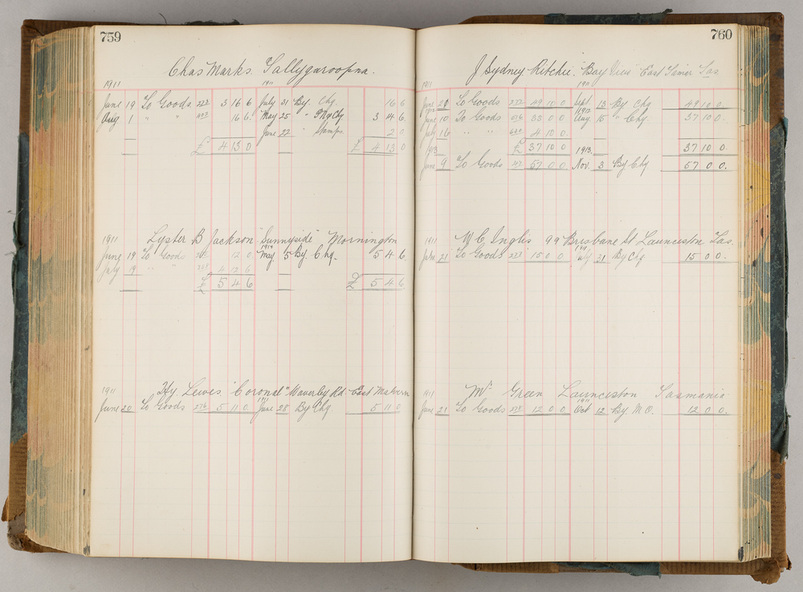 759
Chas Marks. Tallygaroopna.
1911
June 19 To Goods 3 16 6 July 31 By Chq 16 6
Aug 1 " " 16 6 May 25 " P Ng Chq 3 4 6
June 22 " Stamps 2 0
£ 4 13 0 £ 4 13 0
1911 Lyster B Jackson "Sunnyside" Mornington
June 19 To Goods 12 0 May 5 By Chq. 5 4 6
July 9 " " 4 12 6
£ 5 4 6 £ 5 4 6
1911 Hy Lewis "Coronel" Waverley Rd. East Malvern
June 20 To Goods 5 11 0 June 28 By Chq 5 11 0
760
J Sydney Ritchie. "Bay View" East Tamar Tas
1911
June 20 To Goods 49 10 0 Sept 13 By Chq 49 10 0
June 10 To Goods 33 0 0 Aug 15 " Chq 37 10 0
16 " " 4 10 0
£ 37 10 0 1913 37 10 0
June 9 To Goods 57 0 0 Nov. 3 By Chq 57 0 0.
1911 M C Inglis 99 Brisbane St Launceston Tas.
June 21 To Goods 15 0 0 July 21 By Chq 15 0 0.
1911 Mr Green Launceston Tasmania
June 21 To Goods 12 0 0 Oct 12 By M.O. 12 0 0.